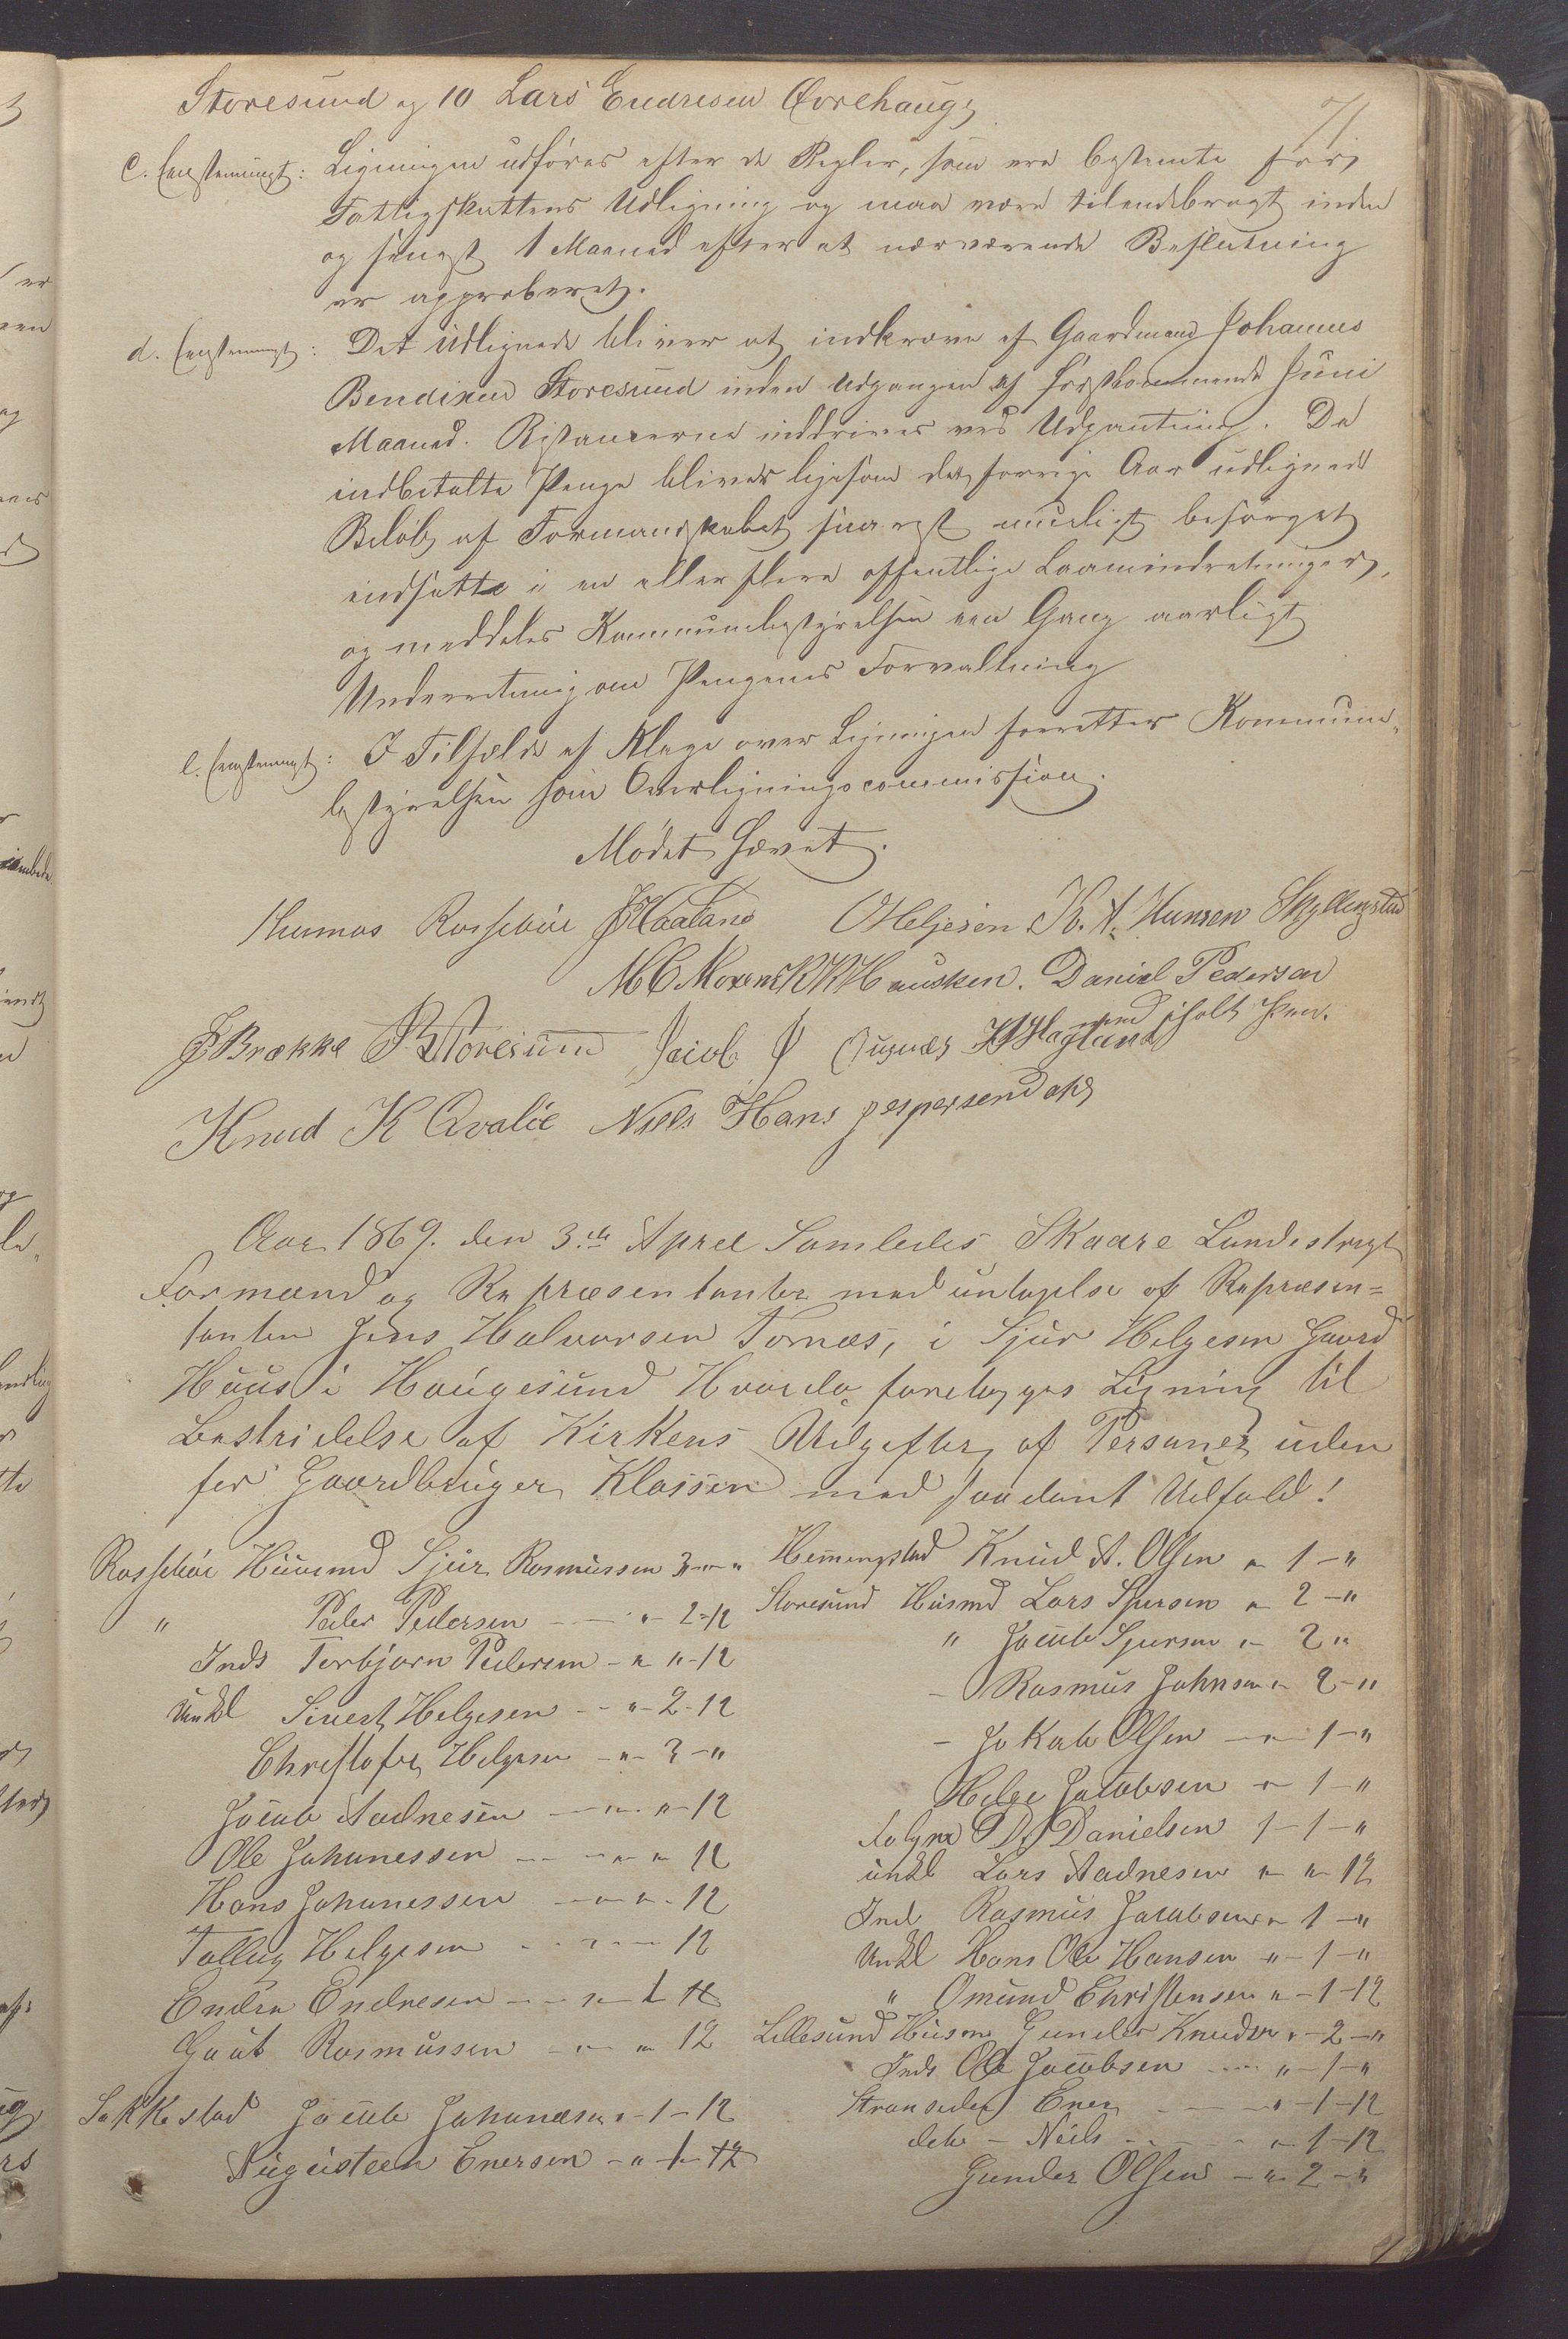 71
Storesund og 10 Lars Endresen Qvrehaug.
c. Eenstemmigt: Ligningen udføres efter de Regler, som ere bestemte for
Fattigskattens Udligning og maa være tilendebragt inden
og senest 1 Maaned efter at nærværende Beslutning
er approberet.
d. Eenstemmigt: Det udlignede bliver at indkræve af Gaardmand Johannes
Bendixen Storesund inden Udgangen af førstkommende Juni
Maaned. Restancerne inddrives ved Udpantning. De
indbetalte Penge bliver ligesom det forrige Aar udlignede
Beløb af Formandskabet snarest mueligt besørget
indsatte i en eller flere offentlige Laaneindretninger,
og meddeles Kommunebestyrelsen een Gang aarligt
Underretning om Pengenes Forvaltning
e. Eenstemmigt: I Tilfælde af Klage over Ligningen forretter Kommune-
bestyrelsen som Overligningscommission.
Mødet hævet.
Thomas Rossebøe JHaaland OHelgesen K. A. Hansen Skyllengstad
KKHausken. Daniel Pedersen
JBrække BStoresund Jacob med iholt Pen.
Knud K Qvalie Niels Hans jespersen
Aar 1869. den 3.die April Samledes Skaare Landistrigt
formænd og Repræsentanter med untagelse af Repræsen=
tanten Jens Halvorsen Tornæs, i Sjur Helgesen Gaard
Huus i Haugesund Hvorda foretages Ligning til
Bestridelse af Kirkens Udgifter af Personer uden
for Gaardbruger Klassen med saadant Udfald!
Rossebøe Huusmd Sjur Rasmussen 3 - "
" Peder Pedersen - " - 2-12
Inds Torbjørn Pedersen - " " - 12
Unkl Sivert Helgesen - " - 2 - 12
Christofer Helgesen - " - 3 - "
Jacob Aadnesen - " - " - 12
Ole Johannessen - " " 12
Hans Johannessen - " " - 12
Tollag Helgesen - - 12
Endre Endresen - " - 1 12
Gaut Rasmussen - " - " 12
Sakkestad Jacob Johannesen " - 1 - 12
Augusteen Enersen - " - 1 - 12
Hemmingstad Knud A. Olsen " 1 - "
Storesund Husmd Lars Sjursen " 2 - "
" Jacob Sjursen " - 2 "
- Rasmus Johnsen " 2 - "
- Jakob Olsen - " - 1 - "
Helge Jacobsen " 1 - "
D Danielsen 1 - 1 - "
unkl Lars Aadnesen " " 12
Ind Rasmus Jacobsen " 1 - "
Unkl Hans Ole Hansen " - 1 - "
" Omund Christensen " - 1 - 12
Lillesund Husm Gunder Knudsen " - 2 - "
Inds Ole Jacobsen - " - 1 - "
Stransider Ener - " - 1 - 12
dito - Niels - " 1 - 12
Gunder Olsen - " 2 - "